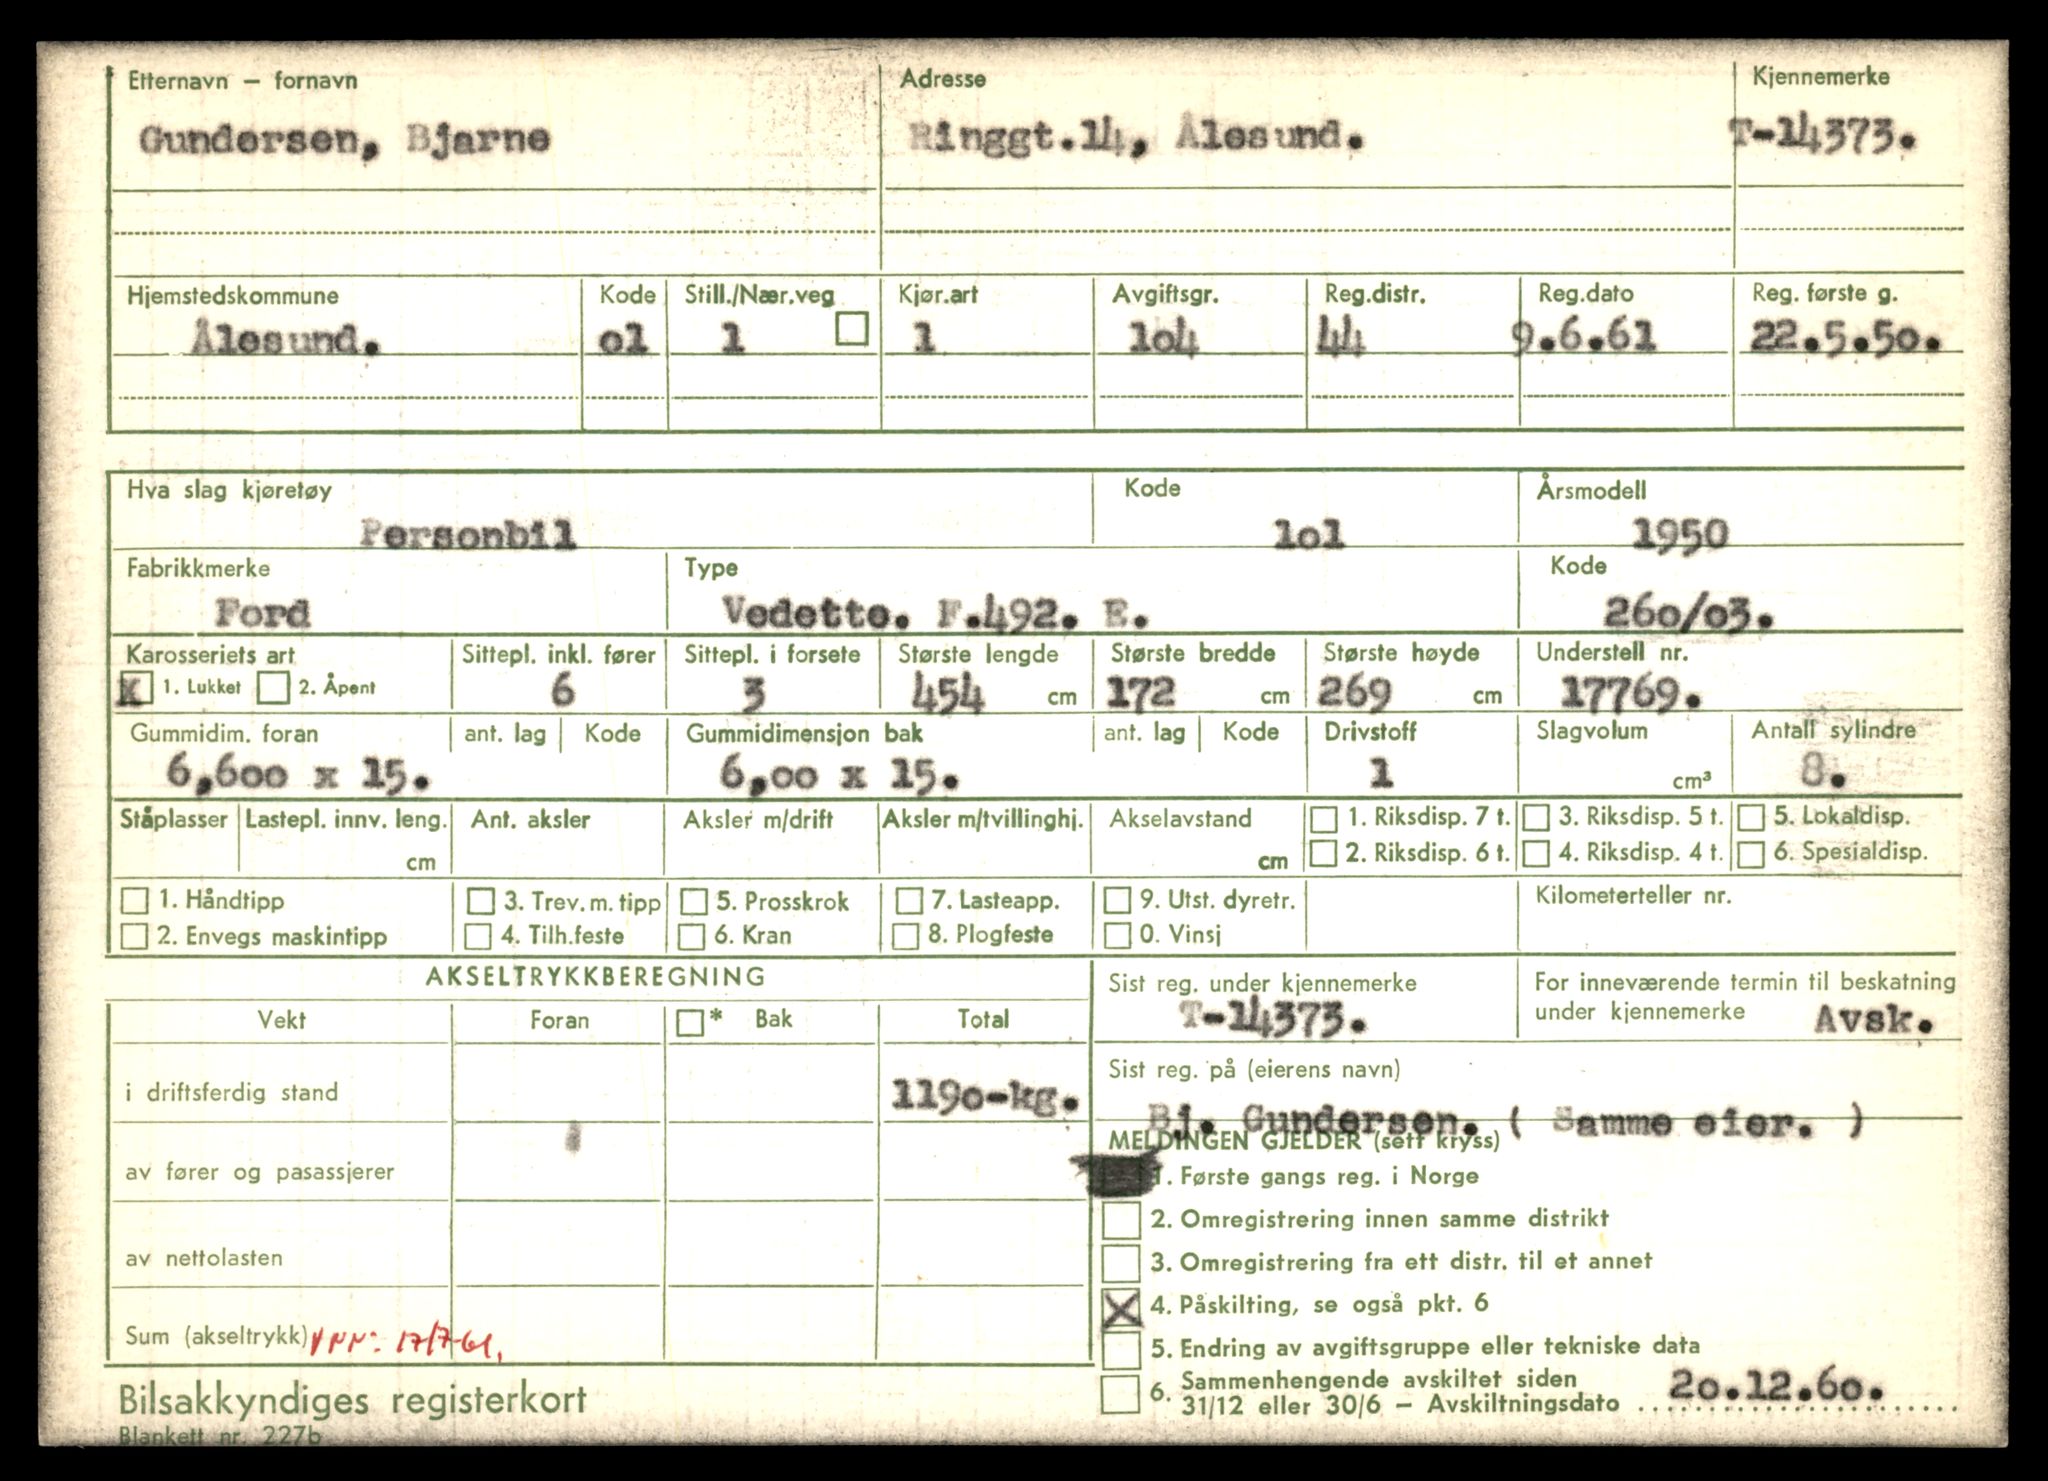 Etternavn — fornavn Adresse Kjennemerke
Gundersen, Bjarne Ringgt.14, Ålesund. T-14373.
Hjemstedskommune Kode Still./Nær.veg Kjør.art Avgiftsgr. Reg.distr. Reg.dato Reg. første g.
Ålesund. o1 1 1 1o4 44 9.6.61 22.5.5o.
Hva slag kjøretøy Kode Årsmodell
Personbil 1o1 1950
Fabrikkmerke Type Kode
Ford Vedette. F.492. E. 26o/o3.
Karosseriets art Sittepl. inkl. fører Sittepl. i forsete Største lengde Største bredde Største høyde Understell nr.
X 1. Lukket 2. Åpent 6 3 454 cm 172 cm 269 cm 17769.
Gummidim. foran ant. lag Kode Gummidimensjon bak ant. lag Kode Drivstoff Slagvolum Antall sylindre
6,6oo x 15. 6,oo x 15. 1 cm³ 8.
Ståplasser Lastepl. innv. leng. Ant. aksler Aksler m/drift Aksler m/tvillinghj. Akselavstand 1. Riksdisp. 7 t. 3. Riksdisp. 5 t. 5. Lokaldisp.
cm cm 2. Riksdisp. 6 t. 4. Riksdisp. 4 t. 6. Spesialdisp.
1. Håndtipp 3. Trev. m. tipp 5. Prosskrok 7. Lasteapp. 9. Utst. dyretr. Kilometerteller nr.
2. Envegs maskintipp 4. Tilh.feste 6. Kran 8. Plogfeste 0. Vinsj
AKSELTRYKKBEREGNING
Vekt Foran * Bak Total
i driftsferdig stand 119o-kg.
av fører og pasassjerer
av nettolasten
Sum (akseltrykk) 17/7-61.
Sist reg. under kjennemerke For inneværende termin til beskatning
T-14373. under kjennemerke Avsk.
Sist reg. på (eierens navn)
Bj. Gundersen. ( Samme eier. )
MELDINGEN GJELDER (sett kryss)
1. Første gangs reg. i Norge
2. Omregistrering innen samme distrikt
3. Omregistrering fra ett distr. til et annet
X 4. Påskilting, se også pkt. 6
5. Endring av avgiftsgruppe eller tekniske data
6. Sammenhengende avskiltet siden
31/12 eller 30/6 — Avskiltningsdato 2o.12.6o.
Bilsakkyndiges registerkort
Blankett nr. 227b